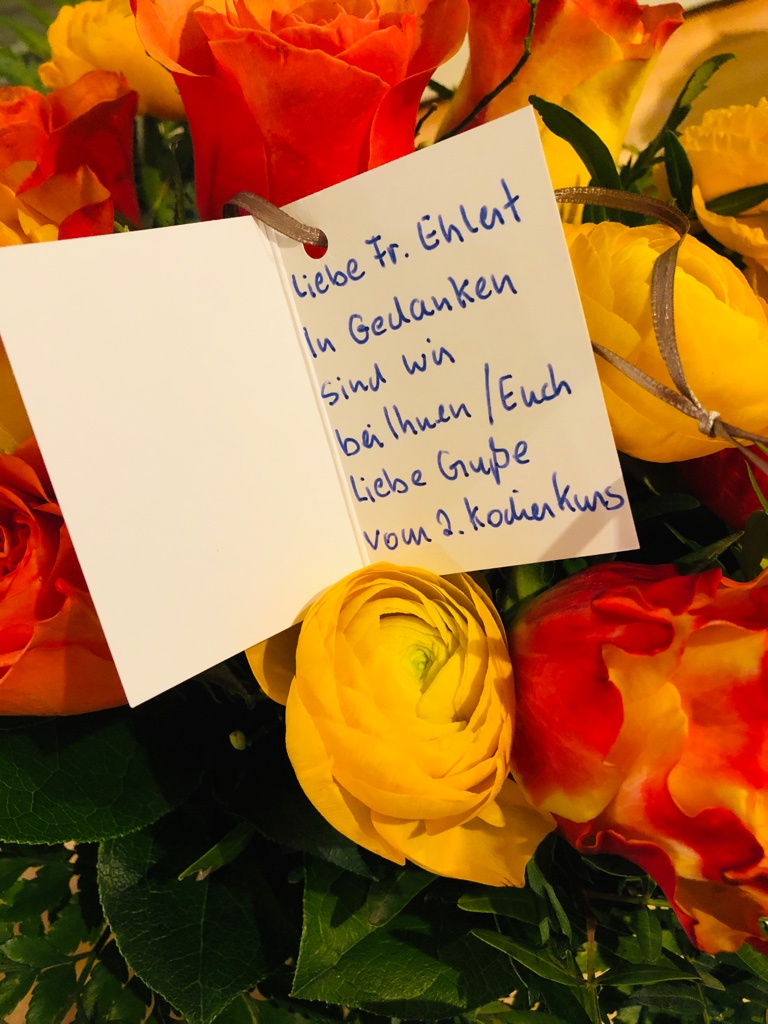 Liebe Fr. Ehlert
In Gedanken
sind wir
bei Ihnen / Euch
Liebe Grüße
vom 2. Kocher Kurs